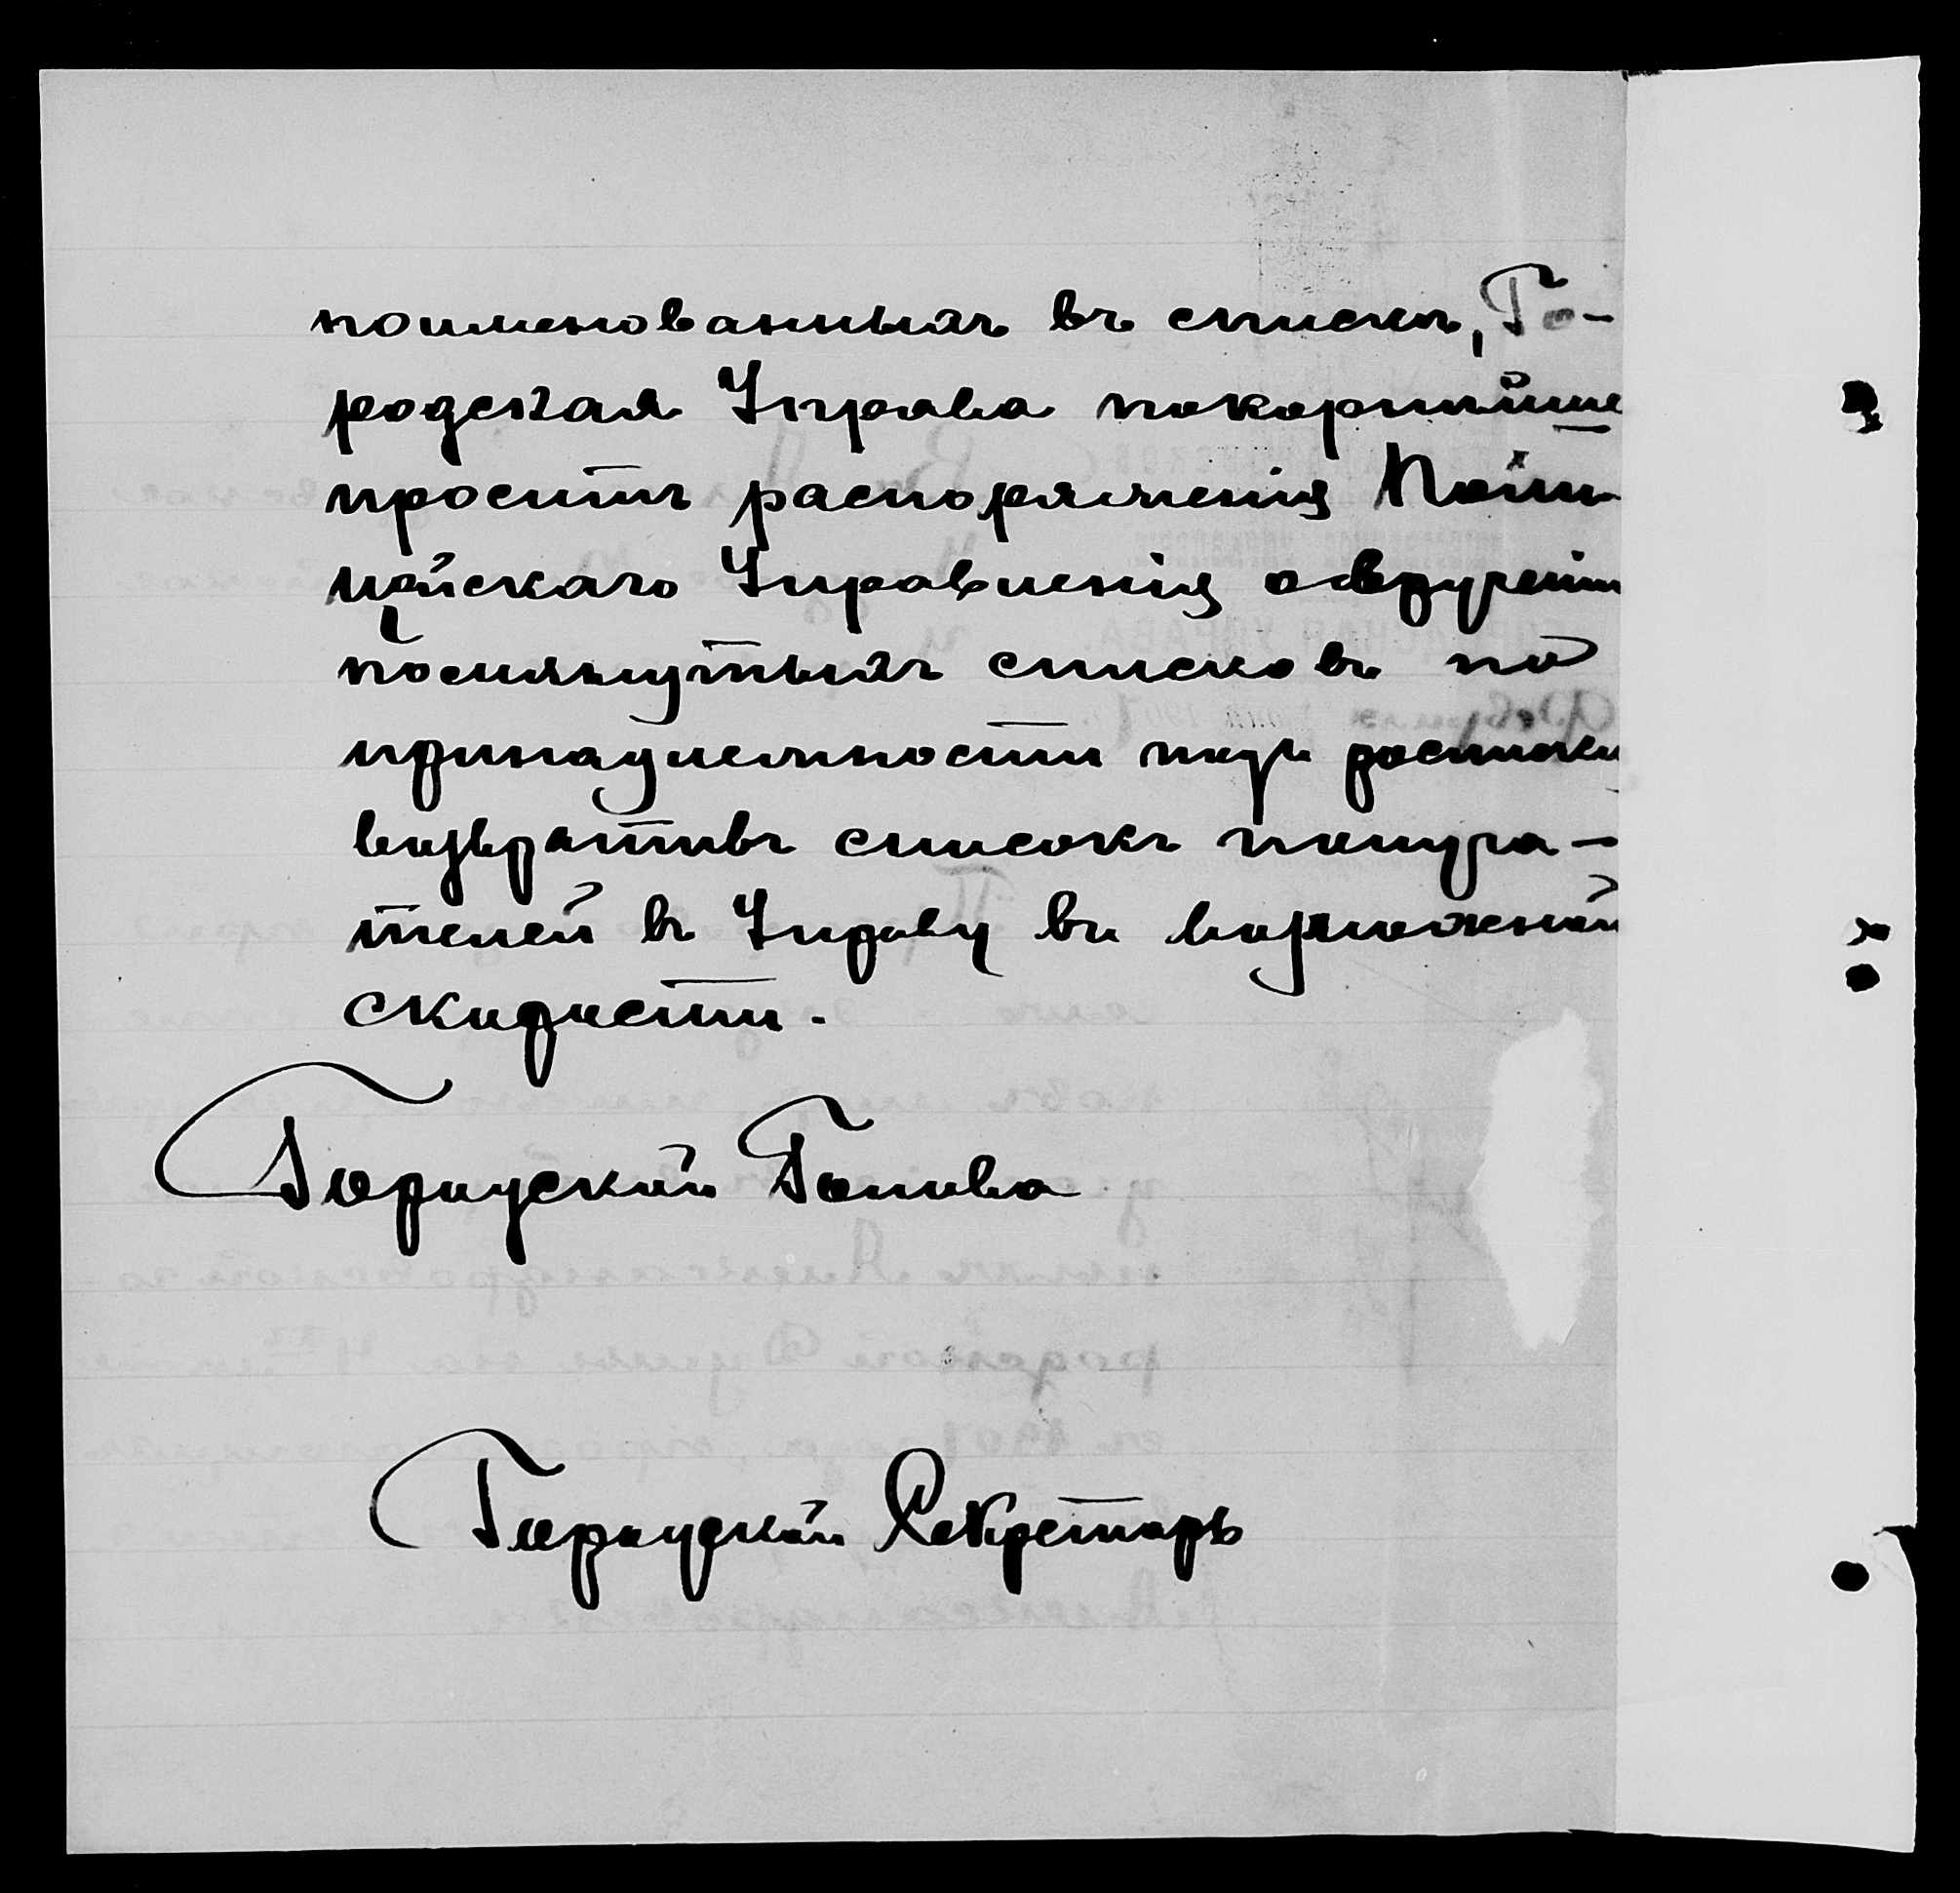 поименованныхъ въ списке, Го-
родская Управа покорнѣйше
проситъ распоряженія Поли
цейскаго Управленія о вручении
помянутыхъ списковъ по
принадлежности подъ росписки
возвративъ списокъ получа-
телей въ Управу въ возможной
скорости.
Городской Голова
Городской Секретарь